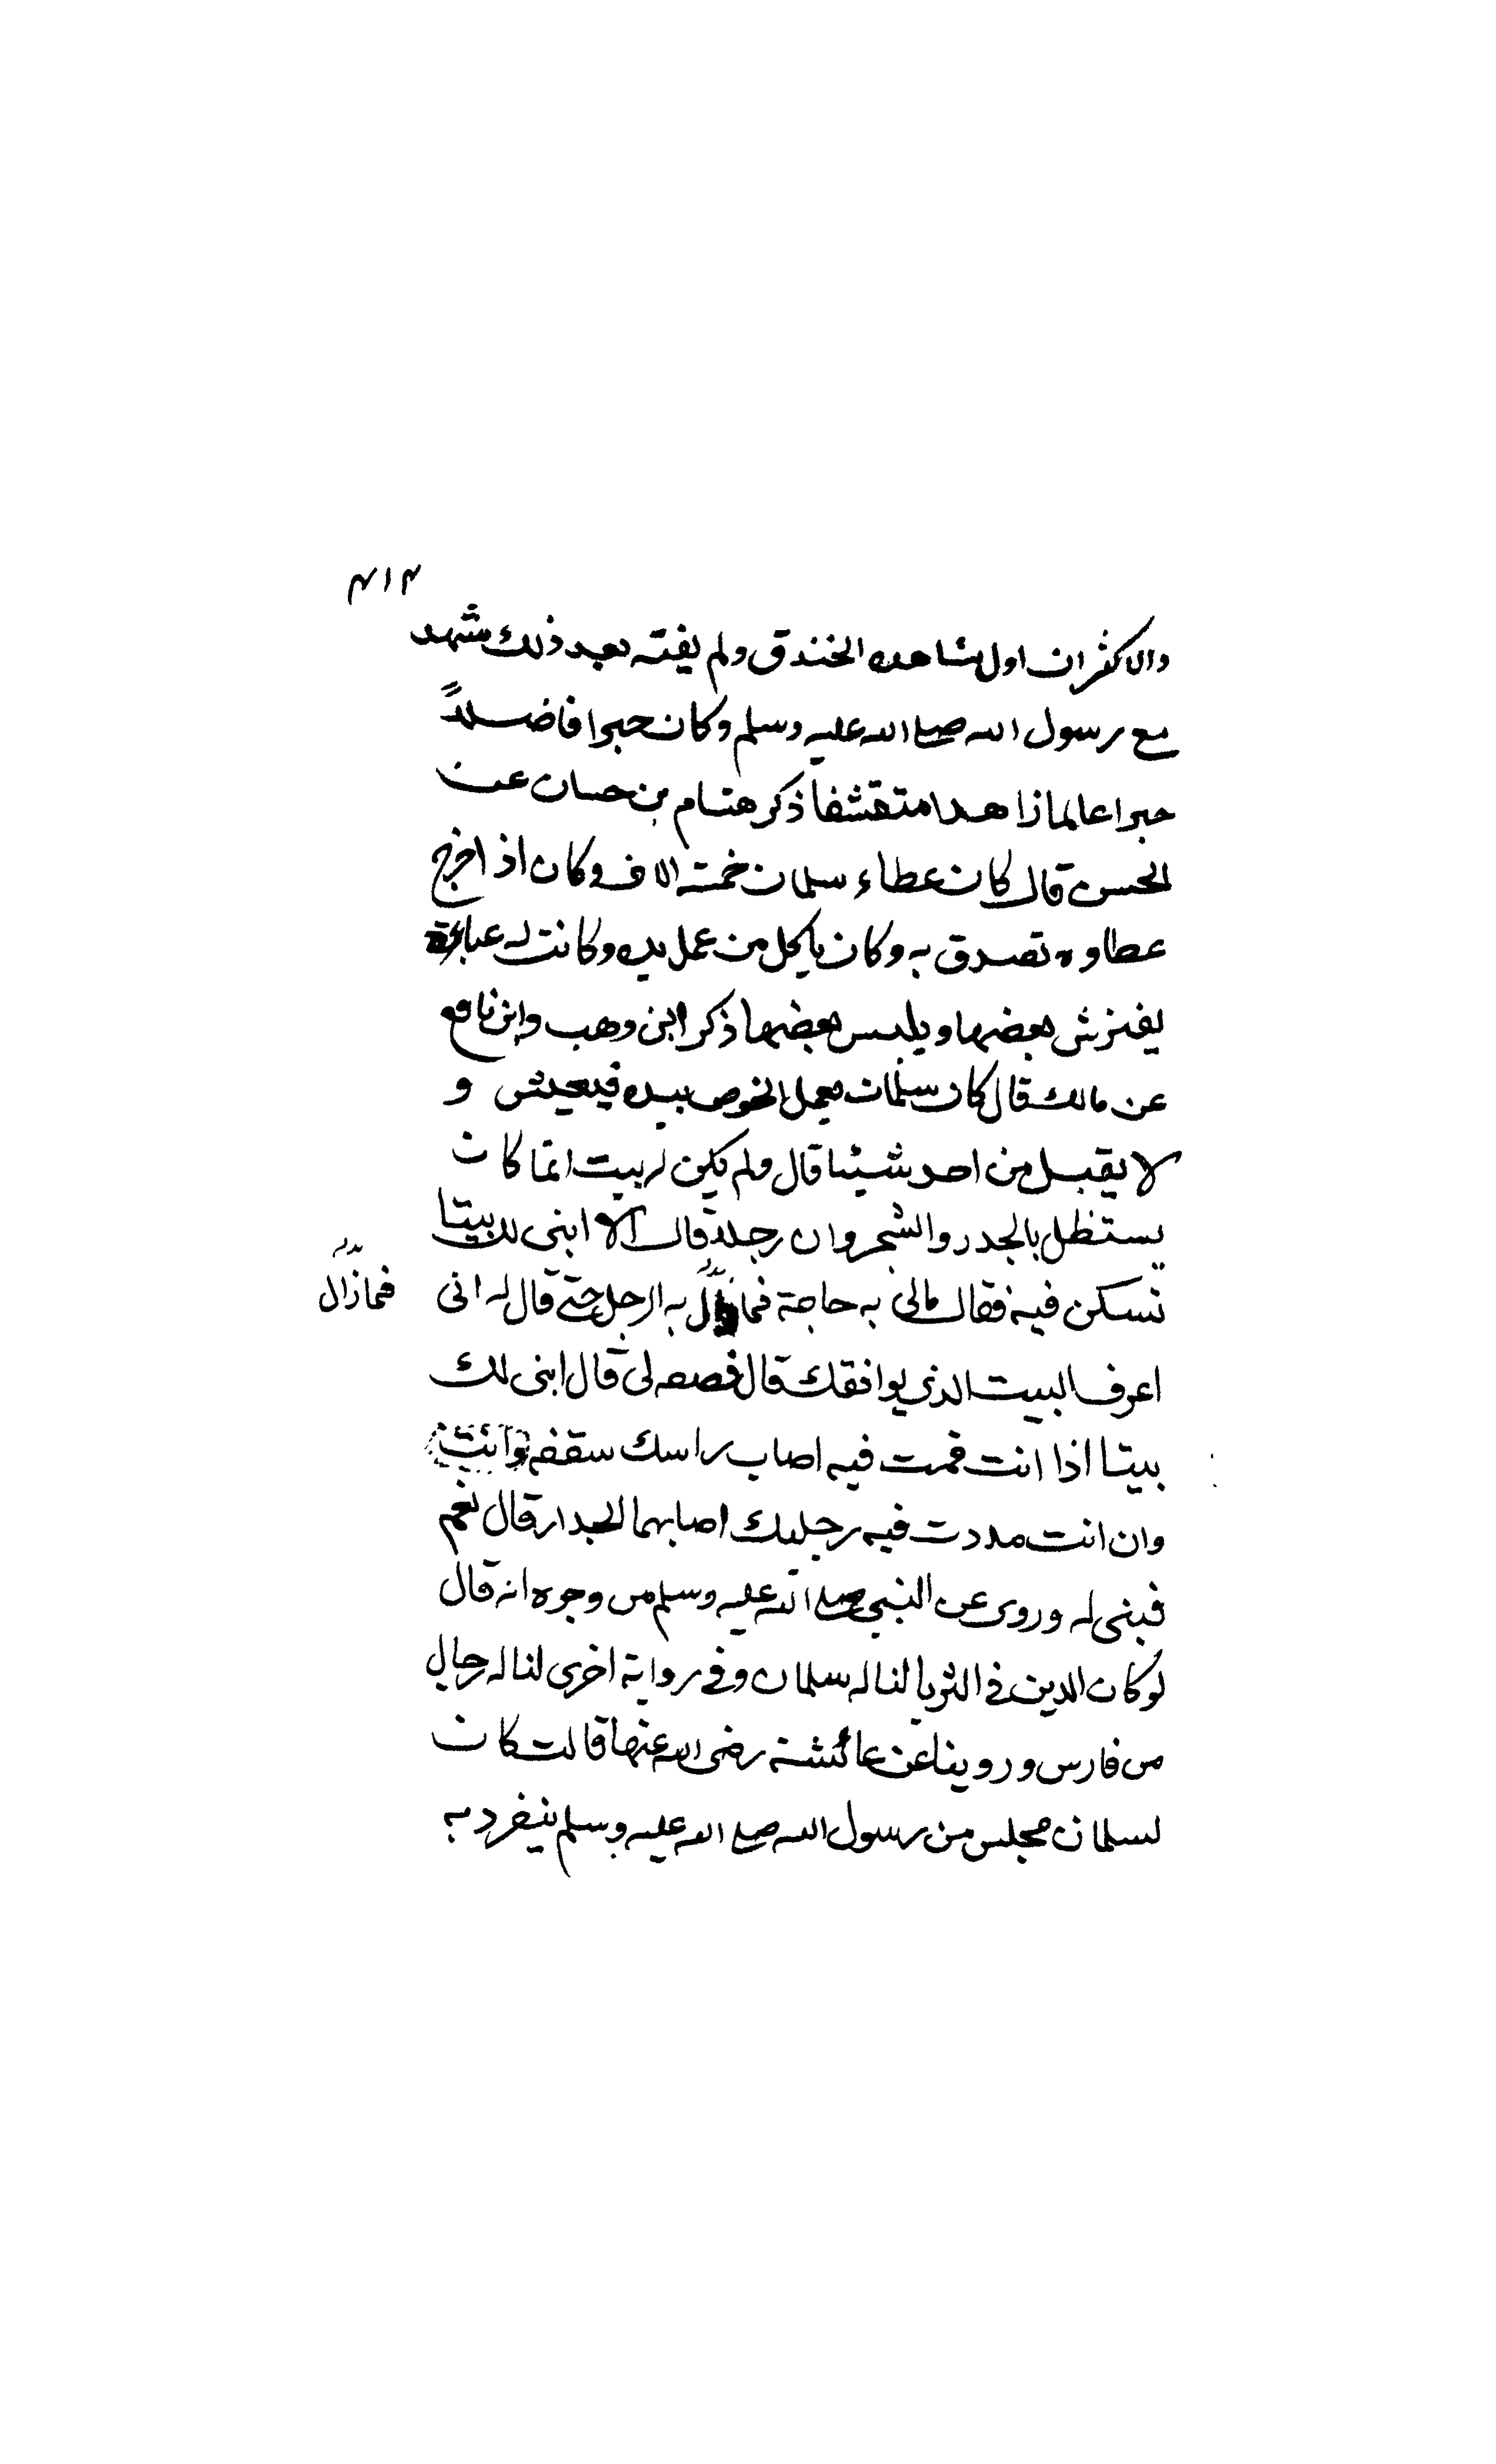 ٤١٣
والاكثر ان اول مشاهده الخندق ولم يفته بعد ذلك مشهد
مع رسول الله صلى الله عليه وسلم وكان حبرا فاضلاً
حبرا عالما زاهدا متقشفا ذكر هشام بن حسان عن
الحسن قال كان عطاء سلمان خمسة الاف وكان اذا خرج
عطاوه تصدق به وكان ياكل من عمل يده وكانت له عباءة
يفترش بعضها ويلبس بعضها ذكر ابن وهب وابن نافع
عن مالك قال كان سلمان يعمل الخوص بيده فيعيش و
لا يقبل من احد شيئا قال ولم يكن له بيت انما كان
يستظل بالجدر والشجر وان رجلا قال الا ابنى لك بيتا
تسكن فيه فقال مالى به حاجة فمازال به الرجل حتى قال له انى
فمازال
اعرف البيت الذى يوافقك قال فصفه لى قال ابنى لك
بيتا اذا انت قمت فيه اصاب راسك سقفه وانت
وان انت مددت فيه رجليك اصابهما الجدار قال نعم
فبنى له وروى عن النبى صلى الله عليه وسلم من وجوه انه قال
لوكان الدين فى الثريا لناله سلمان وفى رواية اخرى لناله رجال
من فارس وروينا عن عائشة رضى الله عنها قالت كان
لسلمان مجلس من رسول الله صلى الله عليه وسلم ينفرد به